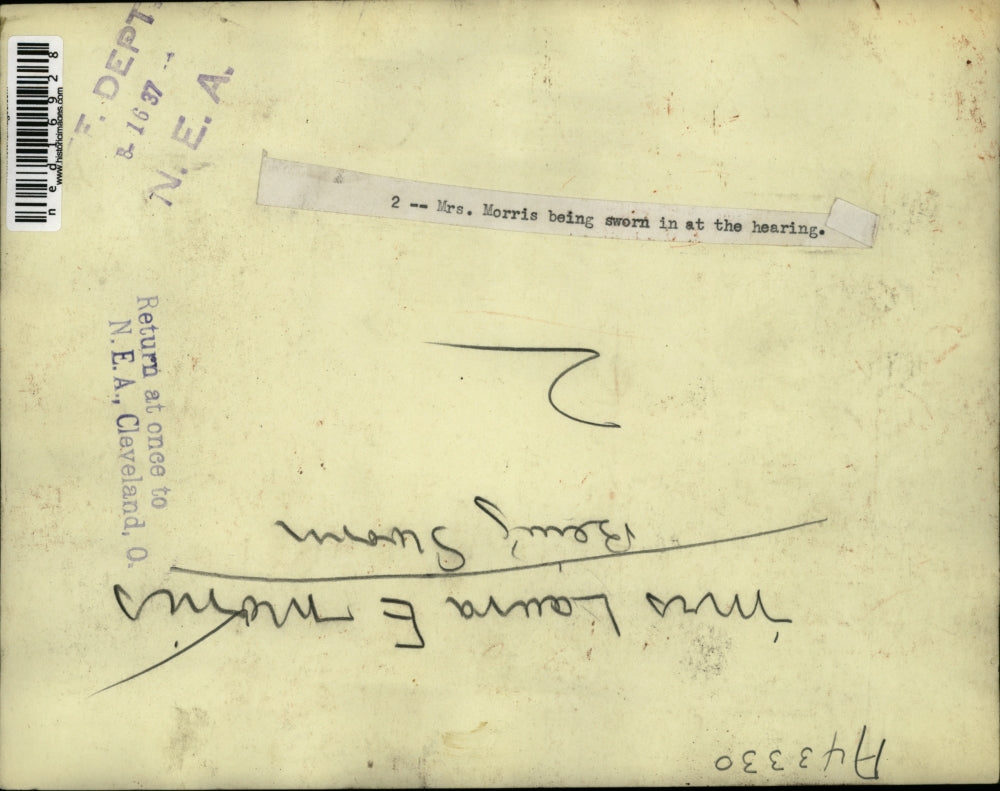 F. DEPT.
2 16 37
N. E. A.
ned16928
www.historicimages.com
2 -- Mrs. Morris being sworn in at the hearing.
Return at once to
N. E. A., Cleveland, O.
2
Mrs Laura E Morris
Being Sworn
A43330